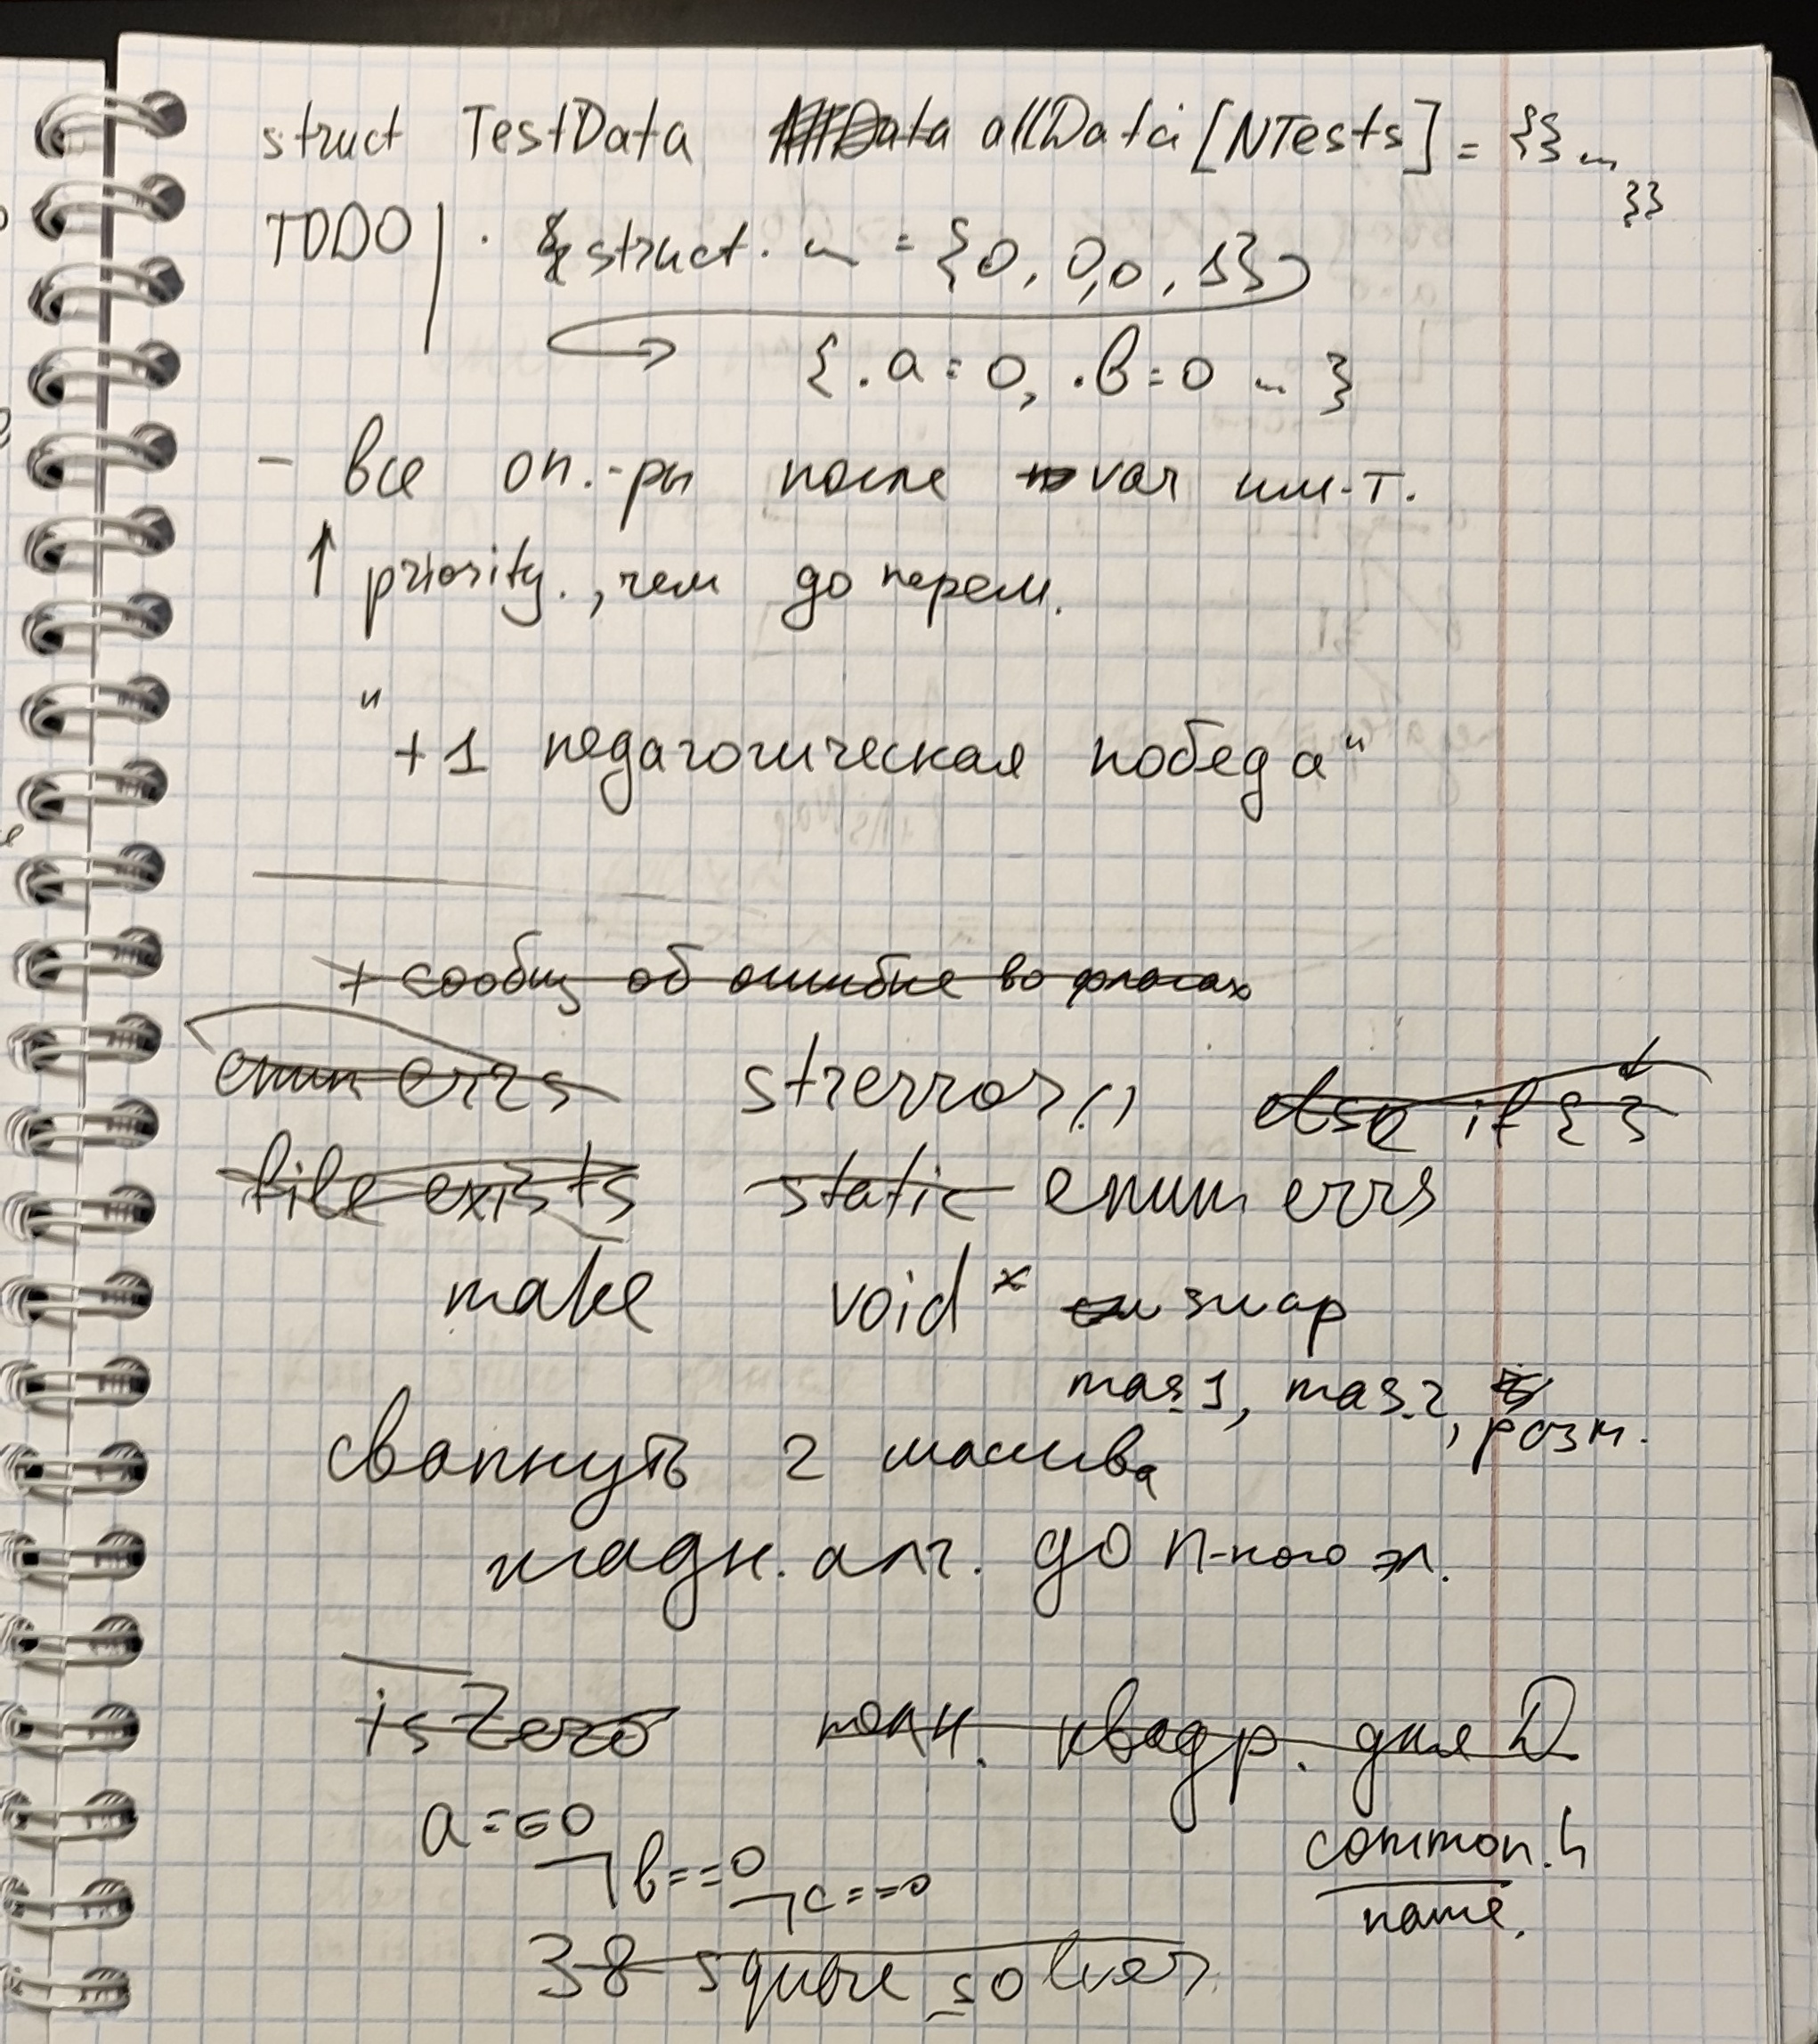 struct TestData allData [NTests] = {{} ...
}}
TODO | · struct. ... = {0, 0,0, 1}
{.a=0, .b=0 ... }
- все оп.-ры после var им-т.
↑ priority., чем до перем.
" +1 педагогическая победа"
+ сообщ об ошибке во флагах
enum errs strerror() else if { }
file exists static enum errs
make void * swap
mas1, mas2, разм.
свапнуть 2 массива
жадн. алг. до n-ного эл.
isZero полн. квадр. для D
a==0
b==0 c==0
common.h
name.
38 square_solver